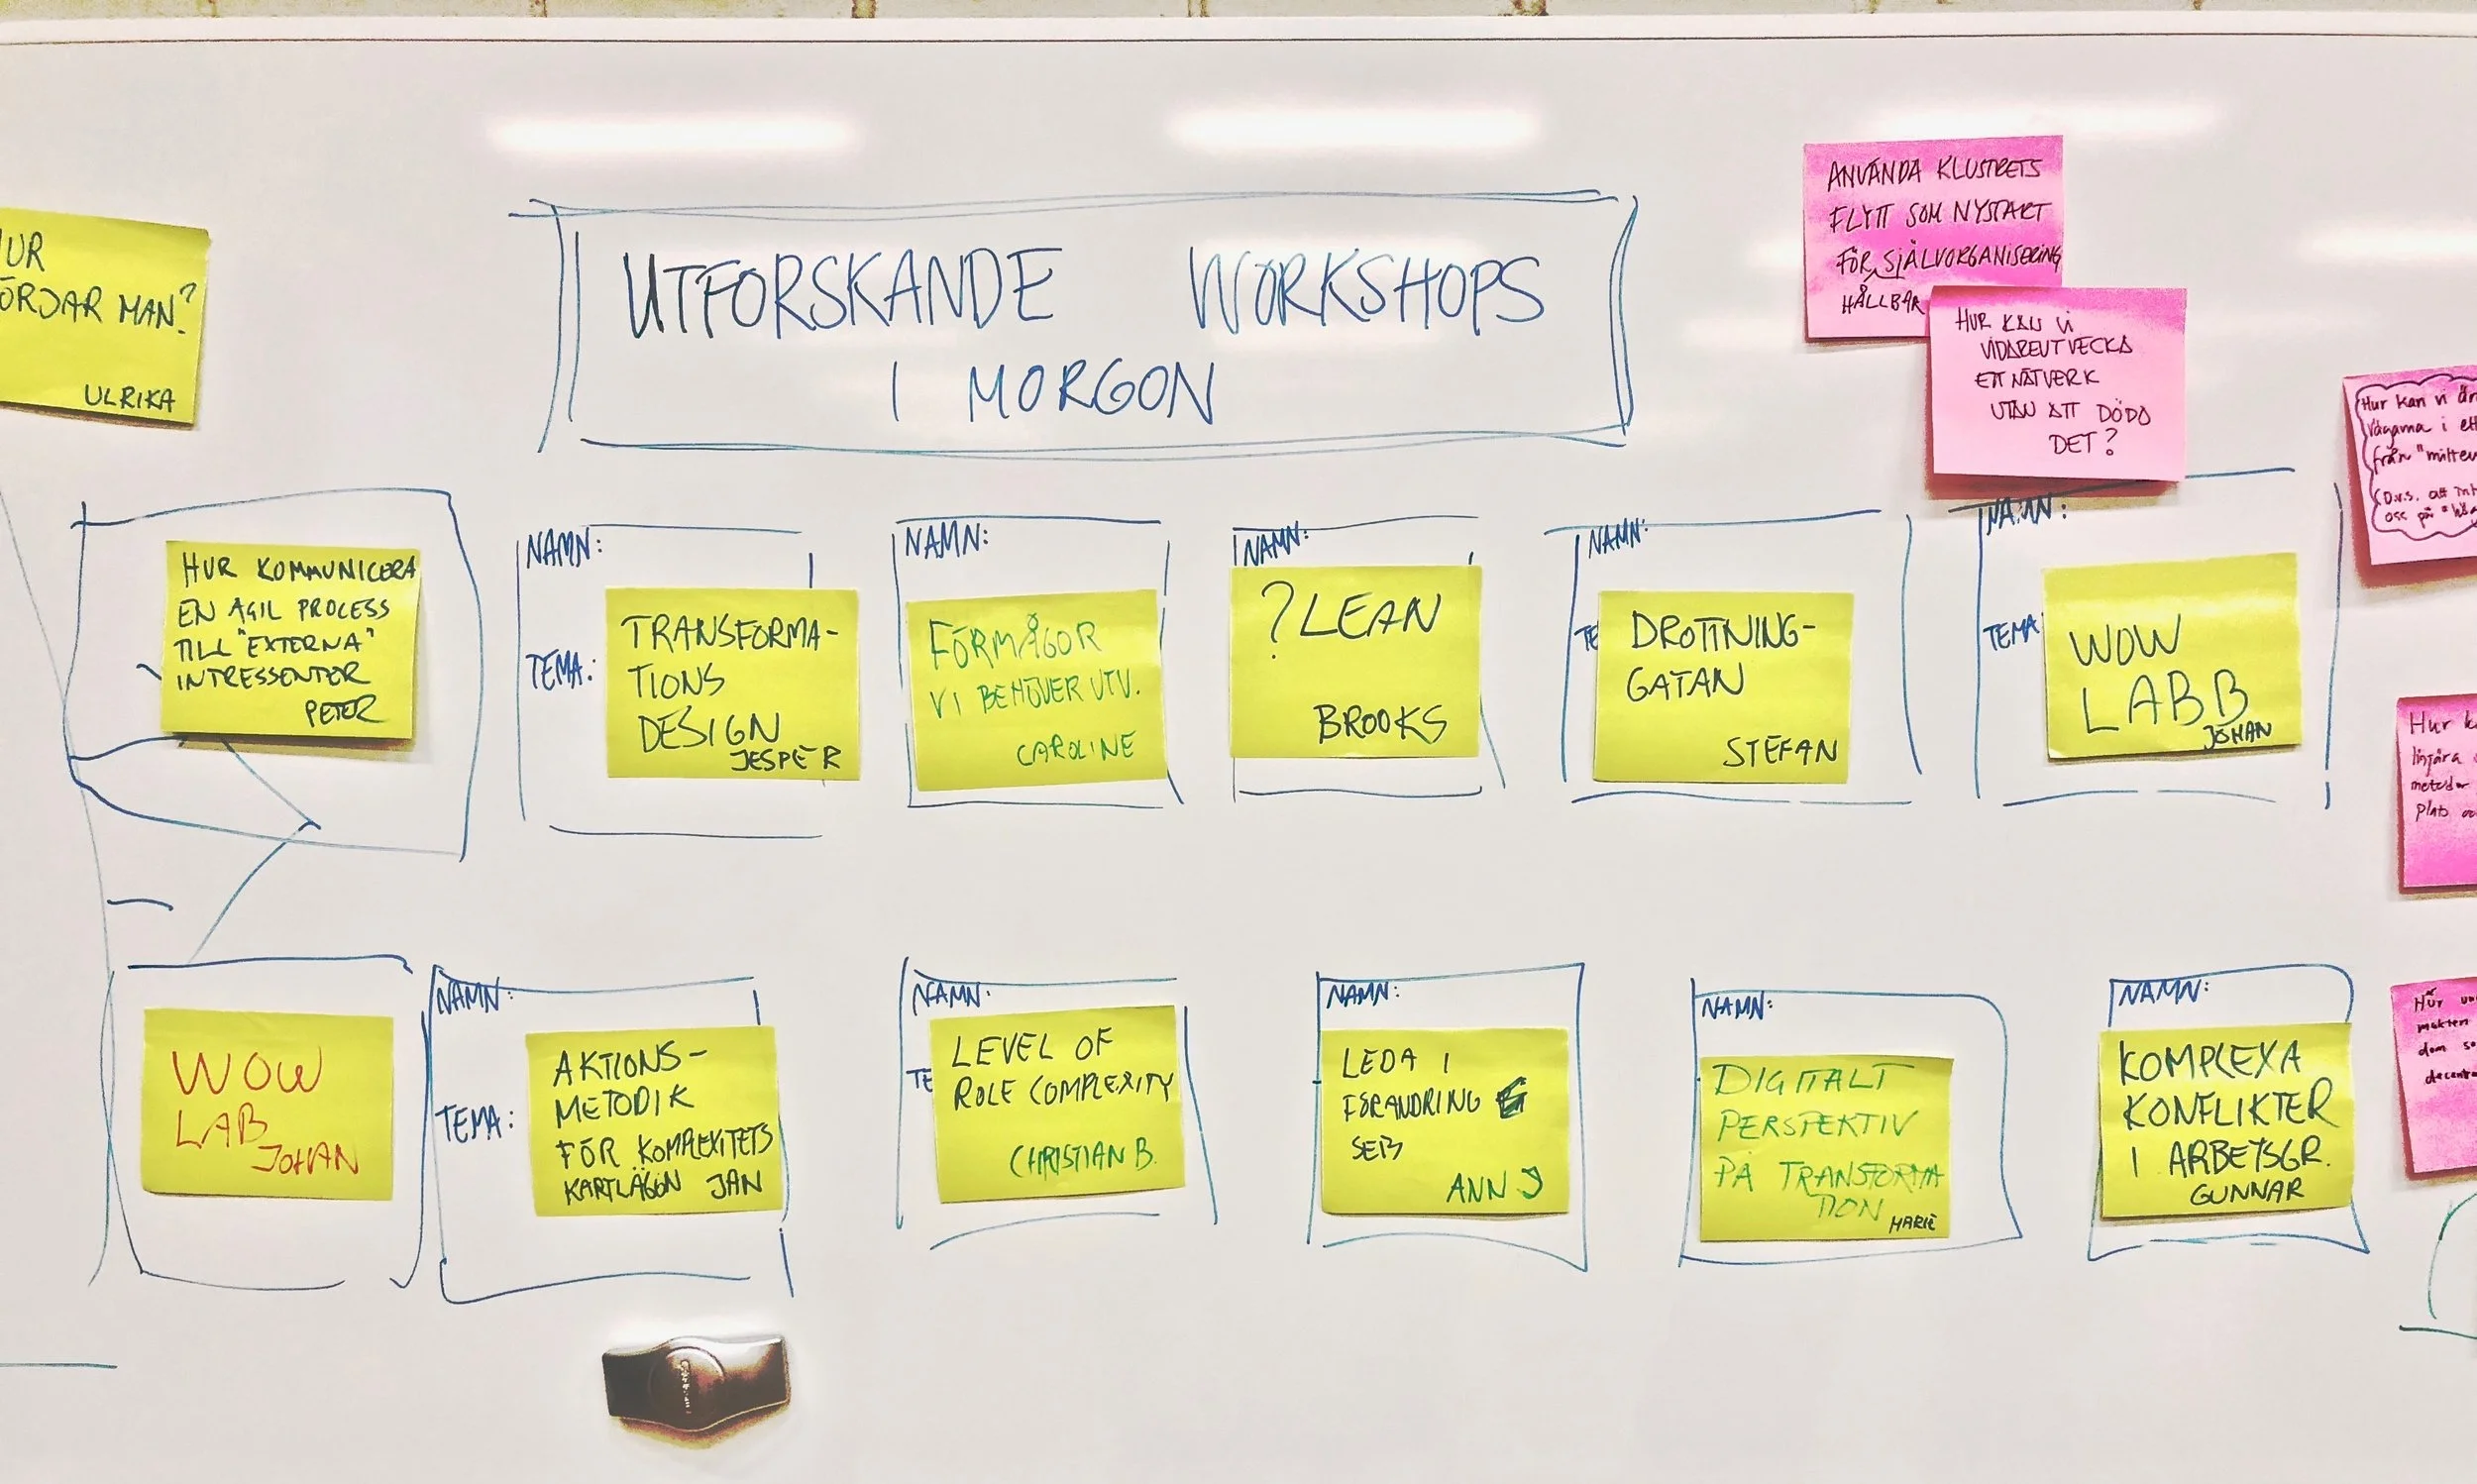 UTFORSKANDE WORKSHOPS
I MORGON
UR
ÖRJAR MAN?
ULRIKA
ANVÄNDA KLUSTRETS
FLYTT SOM NYSTART
FÖR SJÄLVORGANISERING
HÅLLBAR
HUR KAN VI
VIDAREUTVECKLA
ETT NÄTVERK
UTAN ATT DÖDA
DET?
Hur kan vi
Vågarna i ett
från
(D.v.s. att
oss på
HUR KOMMUNICERA
EN AGIL PROCESS
TILL "EXTERNA"
INTRESSENTER
PETER
NAMN:
TEMA:
TRANSFORMA-
TIONS
DESIGN
JESPER
NAMN:
FÖRMÅGOR
VI BEHÖVER UTV.
CAROLINE
NAMN:
? LEAN
BROOKS
NAMN:
TE
DROTTNING-
GATAN
STEFAN
NAMN:
TEMA
WOW
LABB
JOHAN
Hur
linjära
metoder
plats
WOW
LAB
JOHAN
NAMN:
TEMA:
AKTIONS-
METODIK
FÖR KOMPLEXITETS
KARTLÄGGN JAN
NAMN:
TE
LEVEL OF
ROLE COMPLEXITY
CHRISTIAN B.
NAMN:
LEDA I
FÖRÄNDRING
SEB
ANN J
NAMN:
DIGITALT
PERSPEKTIV
PÅ TRANSFORMA
TION
MARIE
NAMN:
KOMPLEXA
KONFLIKTER
I ARBETSGR.
GUNNAR
Hur
makten
dom so